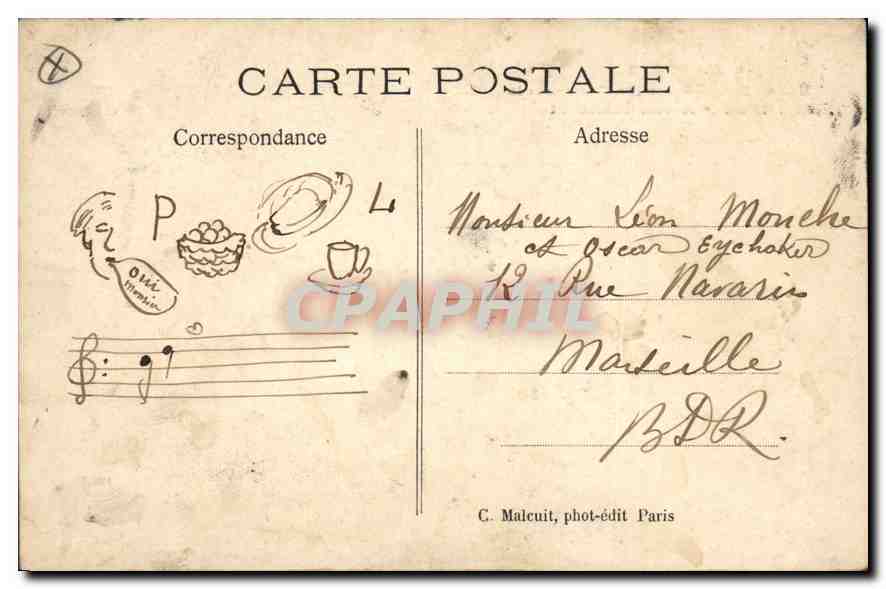 X
CARTE POSTALE
Correspondance
P
L
oui
monsieur
Adresse
Monsieur Léon Mouche
et Oscar Eychaker
12 Rue Navarin
Marseille
BDR.
C. Malcuit, phot-édit Paris
CPAPHIL